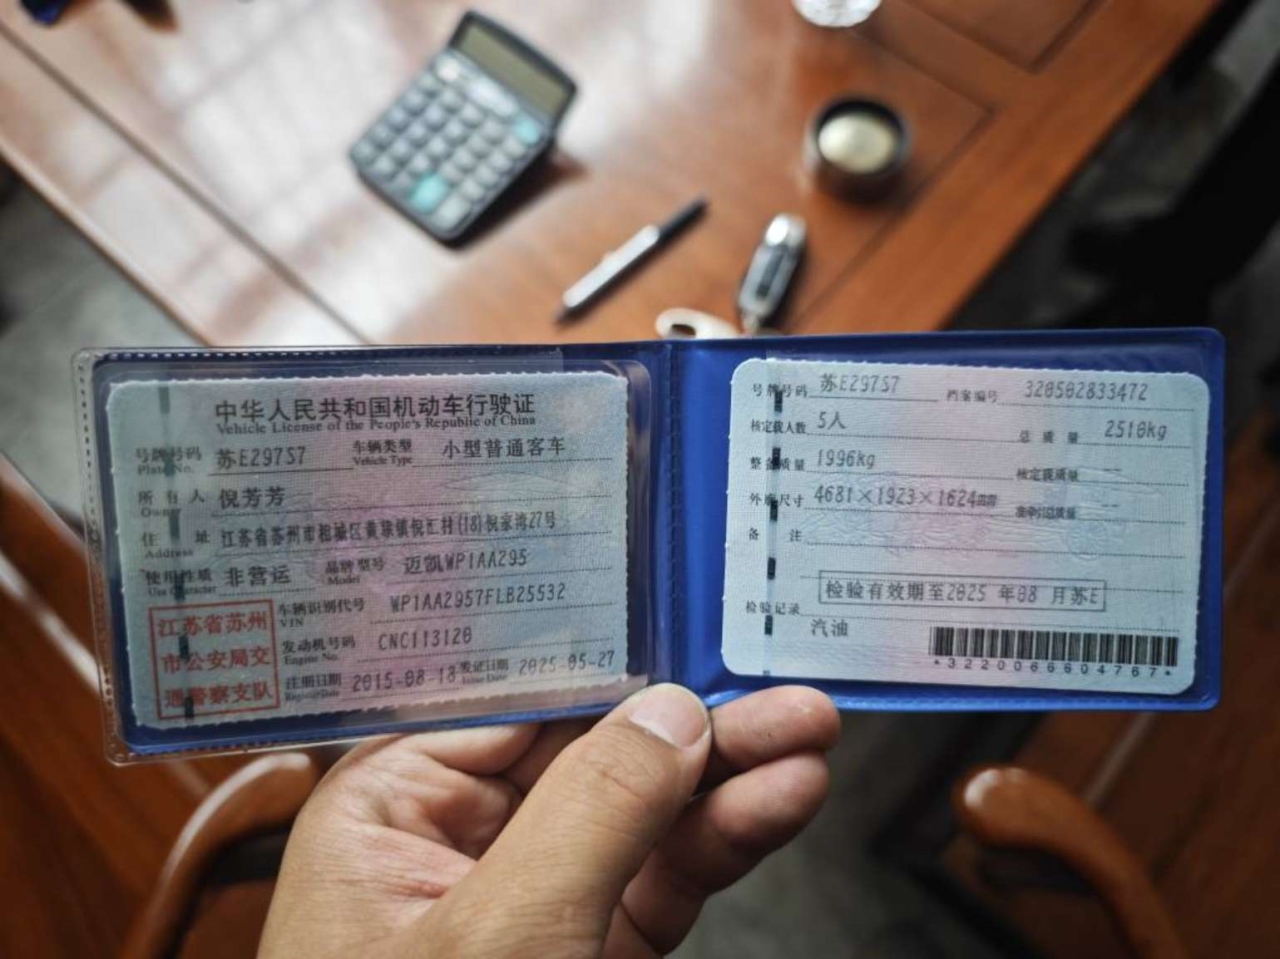 中华人民共和国机动车行驶证
Vehicle License of the People's Republic of China
号牌号码 苏E297S7 车辆类型 小型普通客车
Plate No. Vehicle Type
所有人 倪芳芳
Owner
住址 江苏省苏州市相城区黄埭镇倪汇村(18)倪家湾27号
Address
使用性质 非营运 品牌型号 迈凯WP1AA295
Use Character Model
车辆识别代号 WP1AA2957FLB25532
VIN
发动机号码 CNC113120
Engine No.
注册日期 2015-08-18 发证日期 2025-05-27
Register Date Issue Date
江苏省苏州
市公安局交
通警察支队
号牌号码 苏E297S7 档案编号 320502833472
核定载人数 5人 总质量 2510kg
整备质量 1996kg 核定载质量 --
外廓尺寸 4681×1923×1624mm 准牵引总质量 --
备注
检验有效期至2025年08月苏E
检验记录
汽油
*3220066604767*